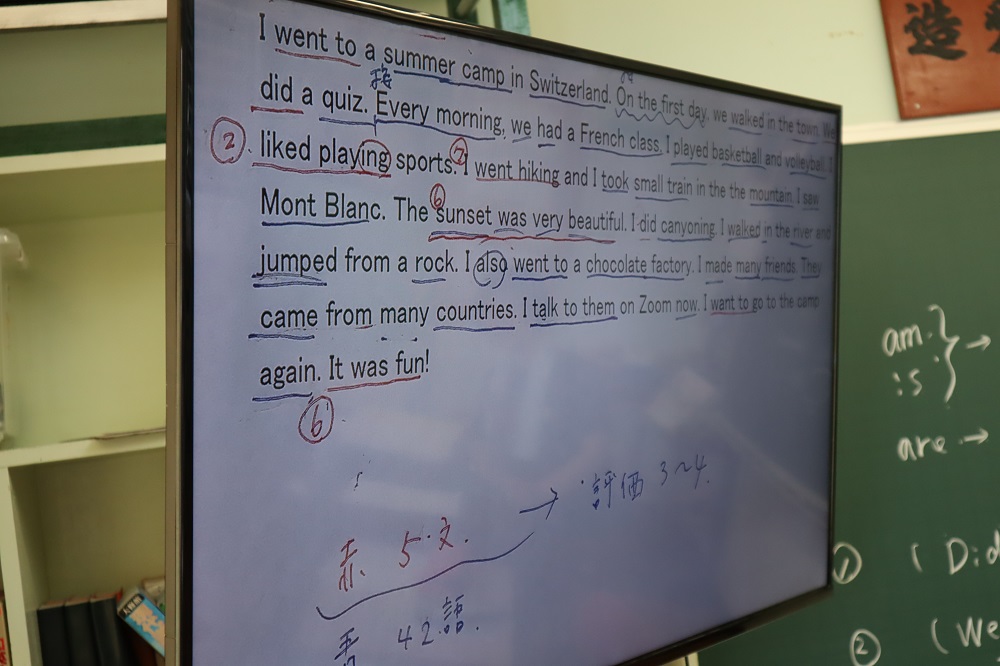 I went to a summer camp in Switzerland. On the first day, we walked in the town. We
did a quiz. Every morning, we had a French class. I played basketball and volleyball. I
② liked playing sports. ⑦ I went hiking and I took small train in the the mountain. I saw
Mont Blanc. The ⑥ sunset was very beautiful. I did canyoning. I walked in the river and
jumped from a rock. I also went to a chocolate factory. I made many friends. They
came from many countries. I talk to them on Zoom now. I want to go to the camp
again. It was fun!
⑥
赤 5文. → 評価 3~4.
青 42語.
造
am }→
is
are →
① ( Did
② (We